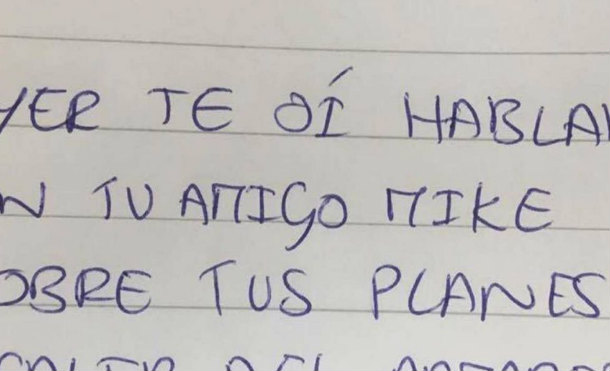 YER TE OÍ HABLA
N TU AMIGO MIKE
OBRE TUS PLANES